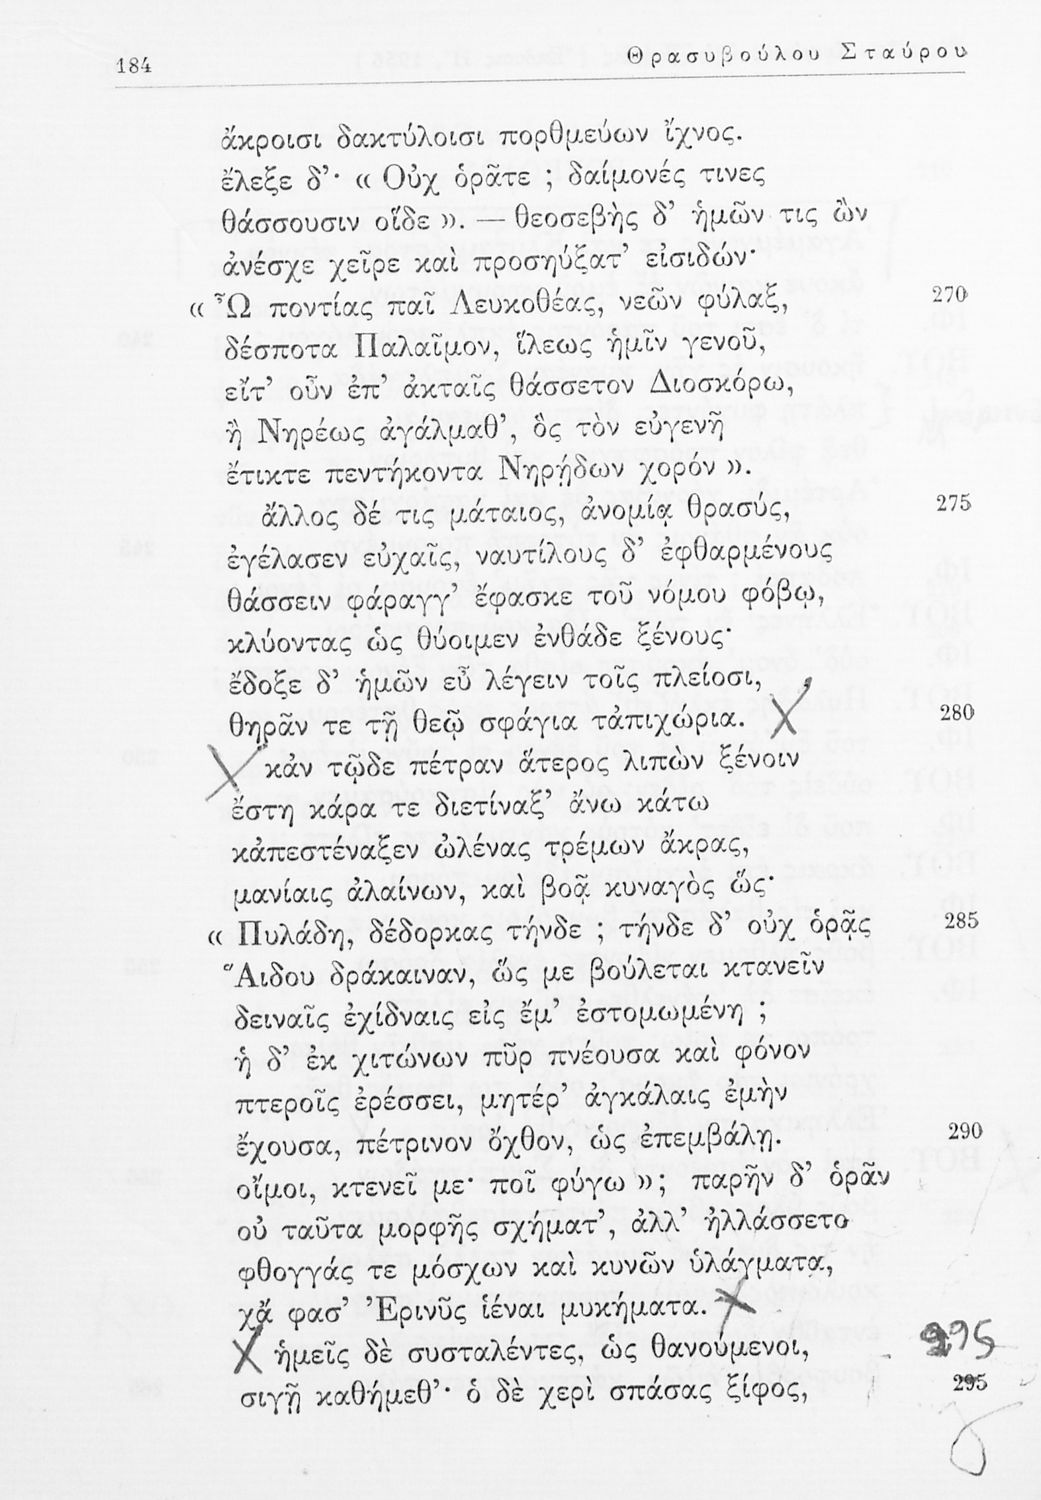 184
Θρασυβούλου Σταύρου
ἄκροισι δακτύλοισι πορθμεύων ἴχνος.
ἔλεξε δ’· « Οὐχ ὁρᾶτε ; δαίμονές τινες
θάσσουσιν οἵδε ». — θεοσεβὴς δ’ ἡμῶν τις ὢν
ἀνέσχε χεῖρε καὶ προσηύξατ’ εἰσιδών·
« Ὦ ποντίας παῖ Λευκοθέας, νεῶν φύλαξ, 270
δέσποτα Παλαῖμον, ἵλεως ἡμῖν γενοῦ,
εἴτ’ οὖν ἐπ’ ἀκταῖς θάσσετον Διοσκόρω,
ἢ Νηρέως ἀγάλμαθ’, ὃς τὸν εὐγενῆ
ἔτικτε πεντήκοντα Νηρῄδων χορόν ».
ἄλλος δέ τις μάταιος, ἀνομίᾳ θρασύς, 275
ἐγέλασεν εὐχαῖς, ναυτίλους δ’ ἐφθαρμένους
θάσσειν φάραγγ’ ἔφασκε τοῦ νόμου φόβῳ,
κλύοντας ὡς θύοιμεν ἐνθάδε ξένους·
ἔδοξε δ’ ἡμῶν εὖ λέγειν τοῖς πλείοσι,
θηρᾶν τε τῇ θεῷ σφάγια τἀπιχώρια. 280
κἀν τῷδε πέτραν ἅτερος λιπὼν ξένοιν
ἔστη κάρα τε διετίναξ’ ἄνω κάτω
κἀπεστέναξεν ὠλένας τρέμων ἄκρας,
μανίαις ἀλαίνων, καὶ βοᾷ κυναγὸς ὥς·
« Πυλάδη, δέδορκας τήνδε ; τήνδε δ’ οὐχ ὁρᾷς 285
Ἅιδου δράκαιναν, ὥς με βούλεται κτανεῖν
δειναῖς ἐχίδναις εἰς ἔμ’ ἐστομωμένη ;
ἡ δ’ ἐκ χιτώνων πῦρ πνέουσα καὶ φόνον
πτεροῖς ἐρέσσει, μητέρ’ ἀγκάλαις ἐμὴν
ἔχουσα, πέτρινον ὄχθον, ὡς ἐπεμβάλῃ. 290
οἴμοι, κτενεῖ με· ποῖ φύγω »; παρῆν δ’ ὁρᾶν
οὐ ταῦτα μορφῆς σχήματ’, ἀλλ’ ἠλλάσσετο
φθογγάς τε μόσχων καὶ κυνῶν ὑλάγματα,
χἄ φασ’ Ἐρινῦς ἱέναι μυκήματα.
ἡμεῖς δὲ συσταλέντες, ὡς θανούμενοι, 295
σιγῇ καθήμεθ’· ὁ δὲ χερὶ σπάσας ξίφος, 295